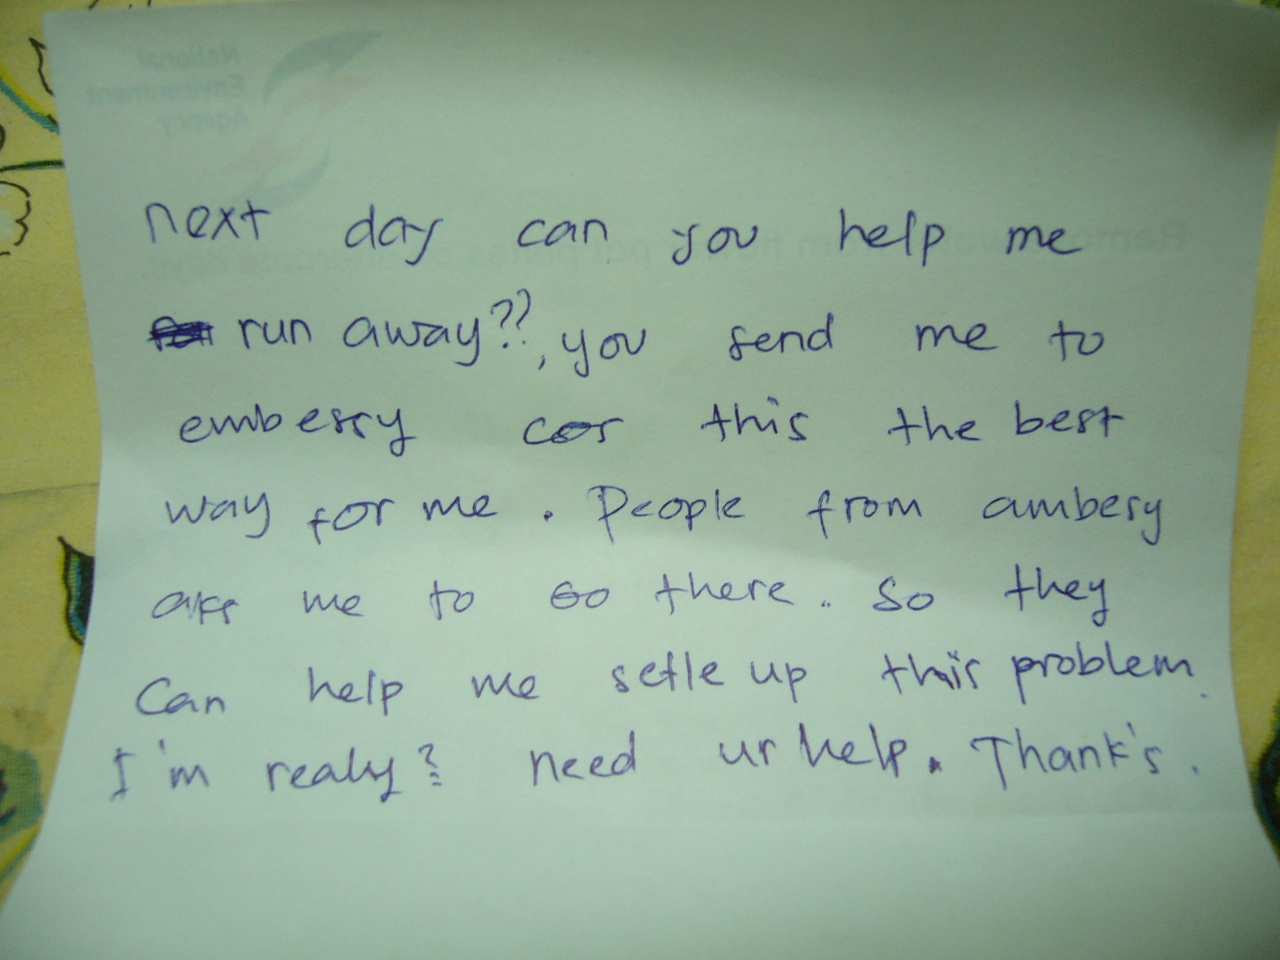 National
Environment
Agency
next day can you help me
run away??, you send me to
embessy cos this the best
way for me. People from ambesy
ask me to Go there.. So they
Can help me setle up this problem.
I'm realy? need ur help. Thank's.